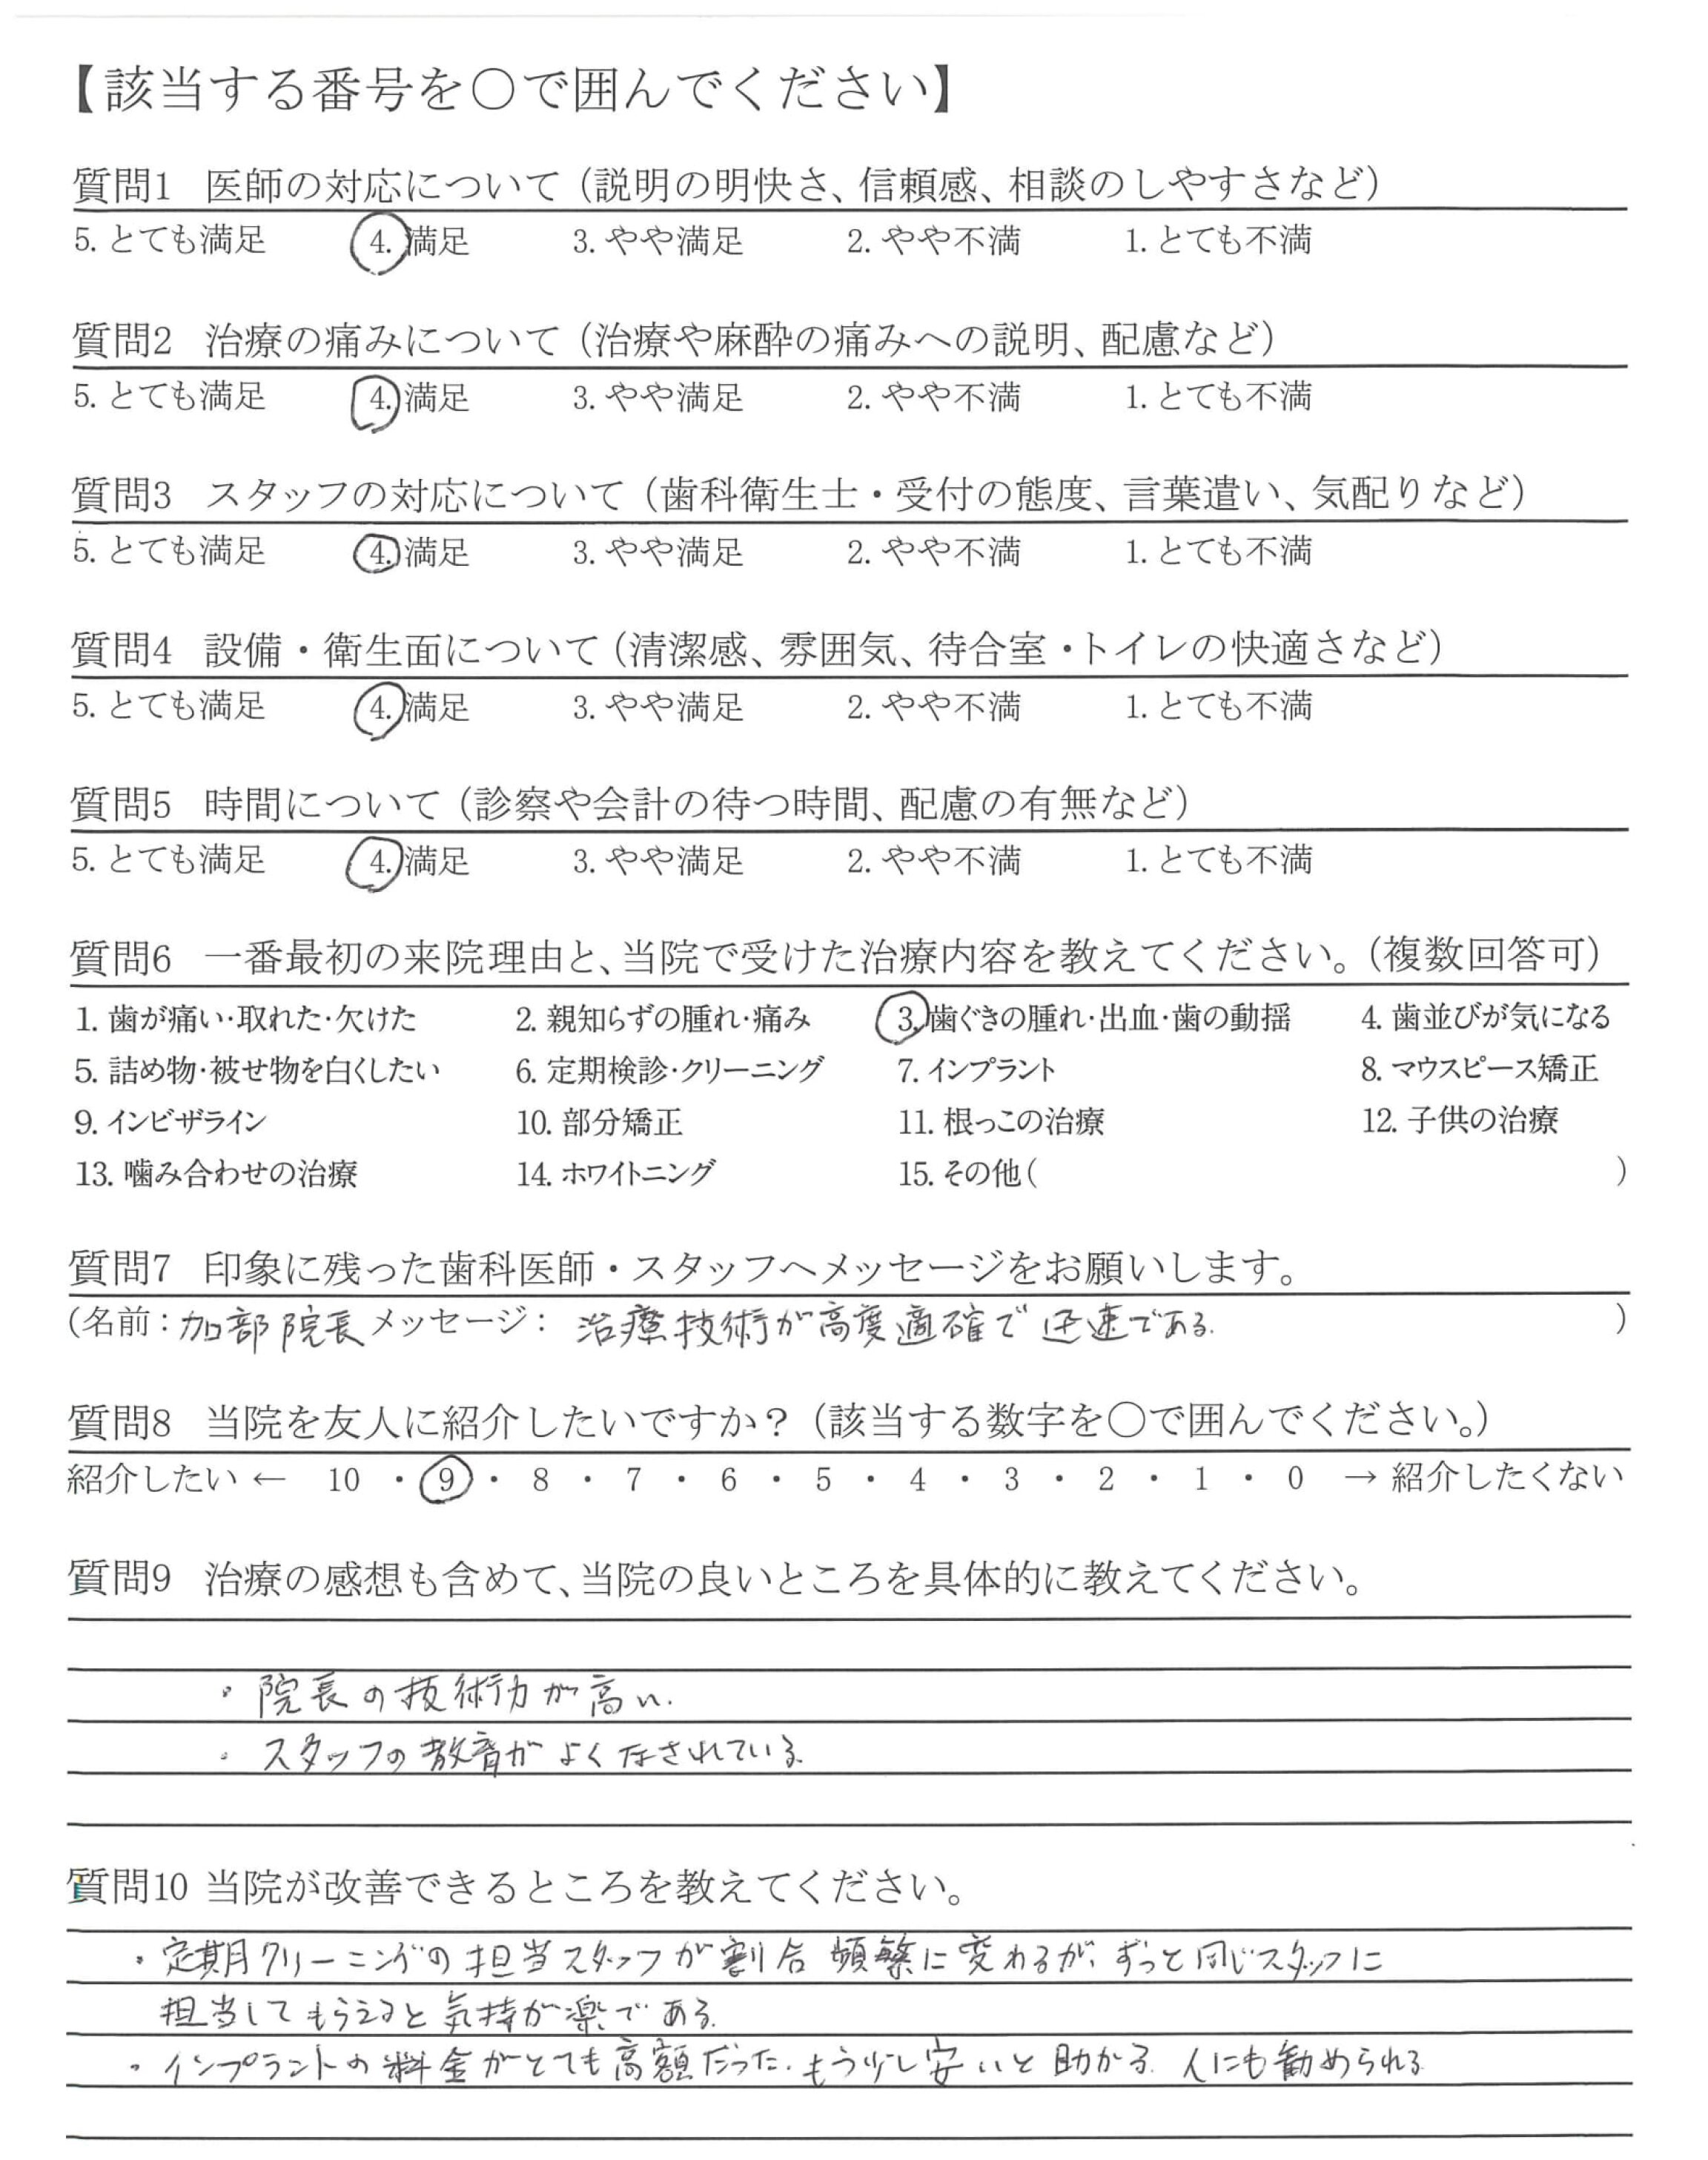 【該当する番号を〇で囲んでください】
質問1 医師の対応について（説明の明快さ、信頼感、相談のしやすさなど）
5. とても満足 4. 満足 3. やや満足 2. やや不満 1. とても不満
質問2 治療の痛みについて（治療や麻酔の痛みへの説明、配慮など）
5. とても満足 4. 満足 3. やや満足 2. やや不満 1. とても不満
質問3 スタッフの対応について（歯科衛生士・受付の態度、言葉遣い、気配りなど）
5. とても満足 4. 満足 3. やや満足 2. やや不満 1. とても不満
質問4 設備・衛生面について（清潔感、雰囲気、待合室・トイレの快適さなど）
5. とても満足 4. 満足 3. やや満足 2. やや不満 1. とても不満
質問5 時間について（診察や会計の待つ時間、配慮の有無など）
5. とても満足 4. 満足 3. やや満足 2. やや不満 1. とても不満
質問6 一番最初の来院理由と、当院で受けた治療内容を教えてください。（複数回答可）
1. 歯が痛い・取れた・欠けた 2. 親知らずの腫れ・痛み 3. 歯ぐきの腫れ・出血・歯の動揺 4. 歯並びが気になる
5. 詰め物・被せ物を白くしたい 6. 定期検診・クリーニング 7. インプラント 8. マウスピース矯正
9. インビザライン 10. 部分矯正 11. 根っこの治療 12. 子供の治療
13. 噛み合わせの治療 14. ホワイトニング 15. その他（ ）
質問7 印象に残った歯科医師・スタッフへメッセージをお願いします。
（名前：加部院長 メッセージ： 治療技術が高度適確で迅速である。 ）
質問8 当院を友人に紹介したいですか？（該当する数字を〇で囲んでください。）
紹介したい ← 10 ・ 9 ・ 8 ・ 7 ・ 6 ・ 5 ・ 4 ・ 3 ・ 2 ・ 1 ・ 0 → 紹介したくない
質問9 治療の感想も含めて、当院の良いところを具体的に教えてください。
・院長の技術力が高い。
・スタッフの教育がよくなされている。
質問10 当院が改善できるところを教えてください。
・定期クリーニングの担当スタッフが割合頻繁に変わるが、ずっと同じスタッフに
担当してもらえると気持が楽である。
・インプラントの料金がとても高額だった。もう少し安いと助かる。人にも勧められる